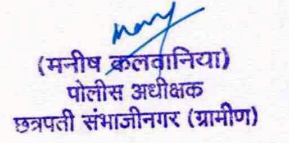 (मनीष कलवानिया)
पोलीस अधीक्षक
छत्रपती संभाजीनगर (ग्रामीण)